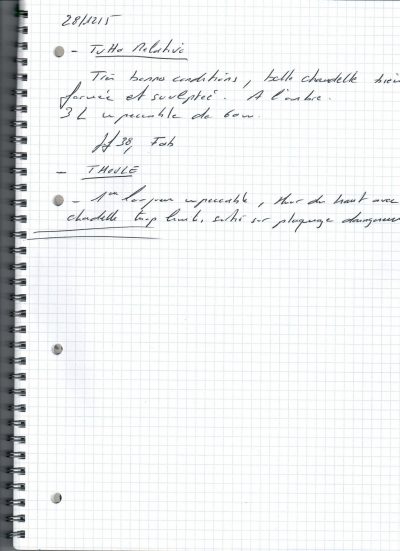 28/12/15
- TUTTO Relative
Très bonnes conditions, belle chandelle bien
formée et sculptée. A l'ombre.
3 L impeccable de 60m.
JJ 38, Fab
- THOULE
- 1ère longueur impeccable, mur du haut avec
chandelle trop limite, sortie sur plaquage dangereux